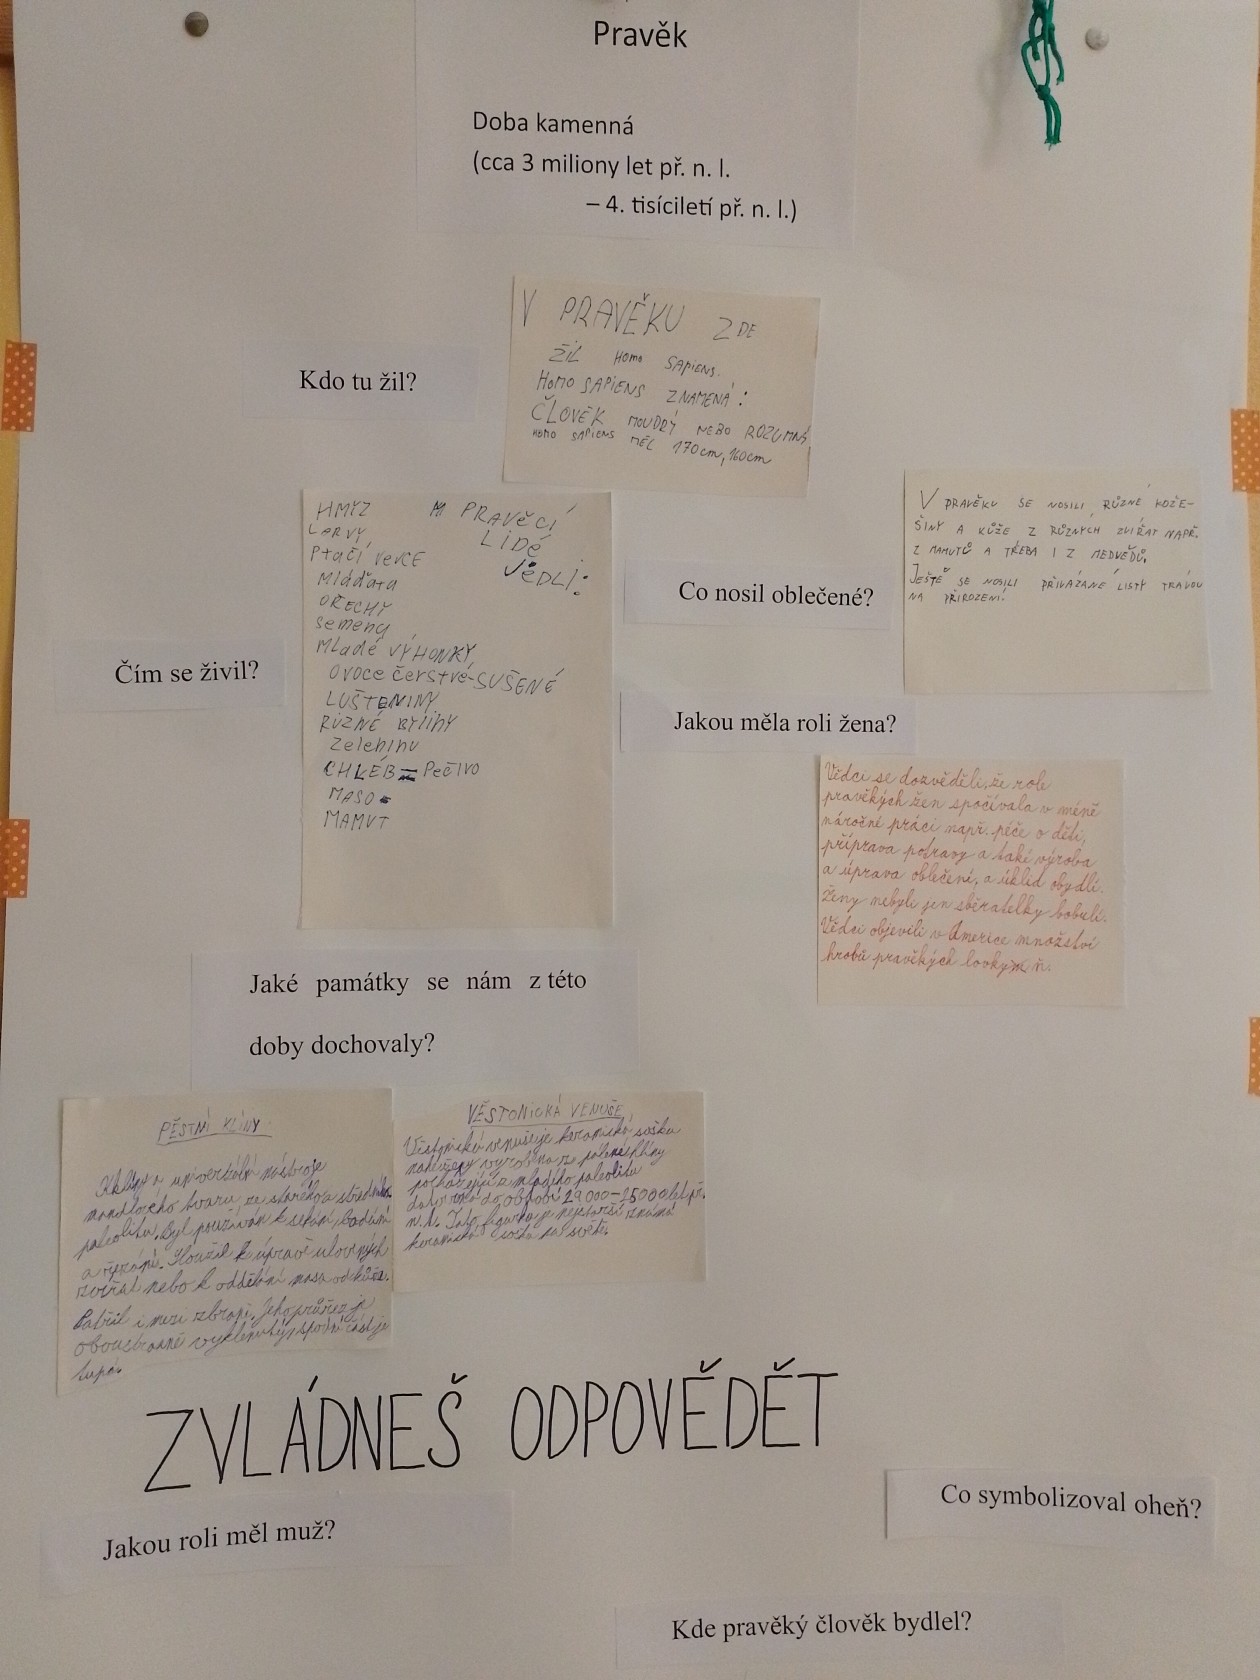 Pravěk
Doba kamenná
(cca 3 miliony let př. n. l.
– 4. tisíciletí př. n. l.)
Kdo tu žil?
V PRAVĚKU ZDE
ŽIL HOMO SAPIENS.
HOMO SAPIENS ZNAMENÁ:
ČLOVĚK MOUDRÝ NEBO ROZUMNÝ
HOMO SAPIENS MĚL 170cm, 160cm
Čím se živil?
PRAVĚCÍ
LIDÉ
JEDLI:
HMYZ
LARVY
PTAČÍ VEJCE
MláĎata
OŘECHY
semeny
MLadé VÝHONKY
OVOCE čerstvé-SUŠENÉ
LUŠTENINY
RŮZNÉ BYLINY
Zeleninu
CHLÉB = PečIVO
MASO
MAMUT
Co nosil oblečené?
V PRAVĚKU SE NOSILI RŮZNÉ KOŽE-
ŠINY A KŮŽE Z RŮZNÝCH ZVÍŘAT NAPŘ.
Z MAMUTŮ A TŘEBA I Z MEDVĚDŮ.
JEŠTĚ SE NOSILI PŘIVÁZANÉ LISTY TRÁVOU
NA PŘIROZENÍ.
Jakou měla roli žena?
Vědci se dozvěděli, že role
pravěkých žen spočívala v méně
náročné práci např. péče o děti,
příprava potravy a také výroba
a úprava oblečení, a úklid obydlí.
Ženy nebyli jen sběratelky bobulí.
Vědci objevili v Americe množství
hrobů pravěkých lovkyň.
Jaké památky se nám z této
doby dochovaly?
PĚSTNÍ KLÍNY
univerzální nástroje
mandlového tvaru, ze starého a středního
paleolitu. Byl používán k sekání, bodání
a řezání. Sloužil k úpravě ulovených
zvířat nebo k oddělání masa od kůže.
Patřil i mezi zbraně. Jeho průřez je
oboustranně vyklenutý, spodní část je
tupá.
VĚSTONICKÁ VENUŠE
Věstonická venuše je keramická soška
nahé ženy vyrobena z pálené hlíny
pocházející z mladého paleolitu
do období 29 000 – 25 000 let př.
n. l. Tato figurka je nejstarší známá
keramická soška na světě.
ZVLÁDNEŠ ODPOVĚDĚT
Jakou roli měl muž?
Co symbolizoval oheň?
Kde pravěký člověk bydlel?